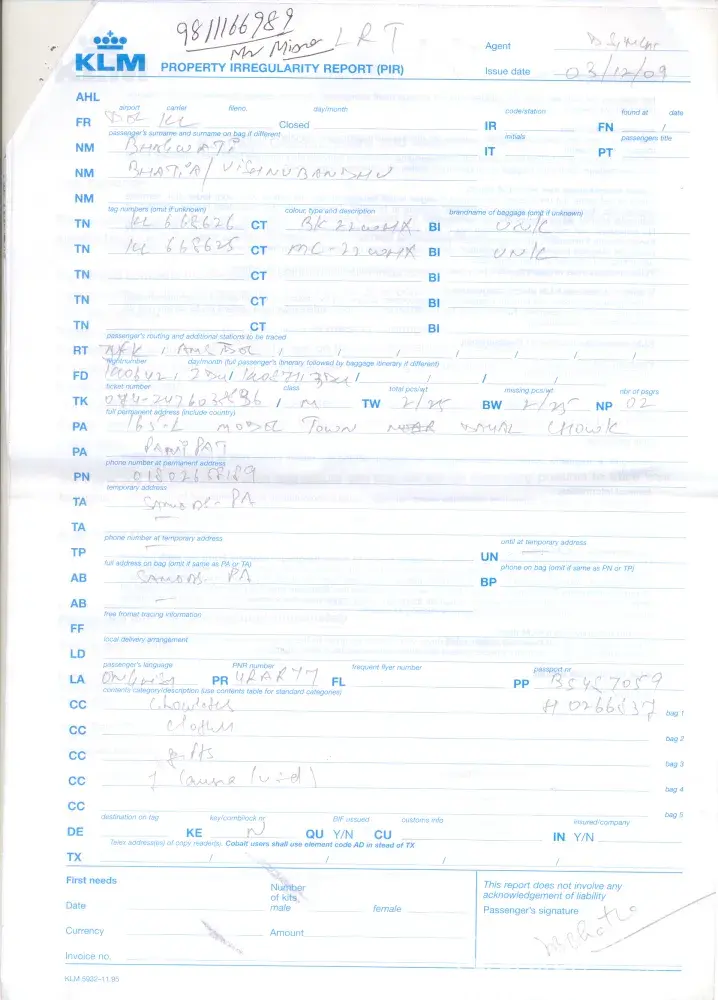 9811166989
Mr Misra LRT
KLM
PROPERTY IRREGULARITY REPORT (PIR)
Agent
Issue date 03/12/09
AHL
airport carrier fileno. day/month code/station found at date
FR DEL KL Closed IR FN /
passenger's surname and surname on bag if different initials passengers title
NM BHAGWATI IT PT
NM BHATIA / VISHNUBANDHU
NM
tag numbers (omit if unknown) colour, type and description brandname of baggage (omit if unknown)
TN KL 668626 CT BK 22 WHX BI UNK
TN KL 668625 CT MC-22 WHX BI UNK
TN CT BI
TN CT BI
TN CT BI
passenger's routing and additional stations to be traced
RT JFK / AMS DEL / / / / / / /
flightnumber day/month (full passenger's itinerary followed by baggage itinerary if different)
FD KL0642 / 2 Dec / KL0871 / 3 Dec / / /
ticket number class total pcs/wt missing pcs/wt nbr of psgrs
TK / M TW 2/25 BW 2/25 NP 02
full permanent address (include country)
PA 165-L MODEL TOWN NEAR DAYAL CHOWK
PA PANIPAT
phone number at permanent address
PN
temporary address
TA SAME AS - PA
TA
phone number at temporary address until at temporary address
TP UN
full address on bag (omit if same as PA or TA) phone on bag (omit if same as PN or TP)
AB SAME AS - PA BP
AB
free fromat tracing information
FF
local delivery arrangement
LD
passenger's language PNR number frequent flyer number passport nr
LA PR FL PP
contents/category/description (use contents table for standard categories)
CC Chocolates bag 1
CC clothes bag 2
CC gifts bag 3
CC bag 4
CC bag 5
destination on tag key/combi/lock nr BIF issued customs info insured/company
DE KE N QU Y/N CU IN Y/N
Telex address(es) of copy reader(s). Cobalt users shall use element code AD in stead of TX
TX / / / /
First needs
Number of kits,
male female
Date
Currency Amount
Invoice no.
This report does not involve any
acknowledgement of liability
Passenger's signature
KLM 5932-11.95